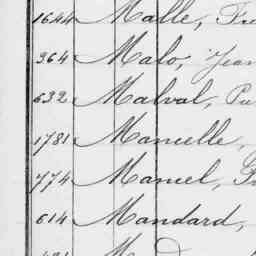 1644 Malle, Fr
364 Malo, Jean
632 Malval, Pu
1781 Mancelle,
774 Mancel, Fr
614 Mandard,